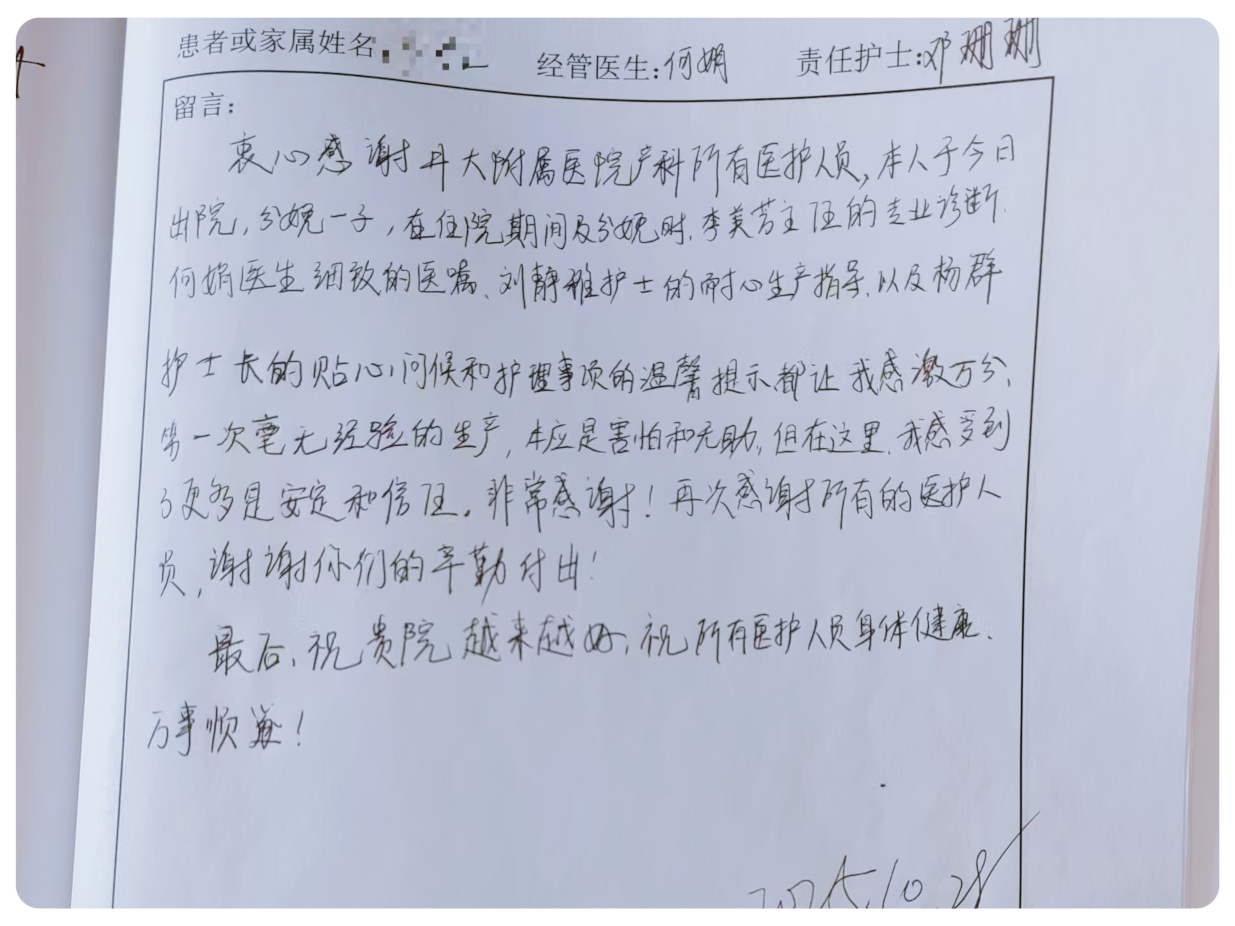 患者或家属姓名 经管医生:何娟 责任护士:邓珊珊
留言:
衷心感谢井大附属医院产科所有医护人员,本人于今日
出院,分娩一子,在住院期间及分娩时,李美芳主任的专业诊断、
何娟医生细致的医嘱、刘静雅护士的耐心生产指导、以及杨群
护士长的贴心问候和护理事项的温馨提示都让我感激万分、
第一次毫无经验的生产,本应是害怕和无助,但在这里,我感受到
了更多是安定和信任。非常感谢!再次感谢所有的医护人
员,谢谢你们的辛勤付出!
最后、祝贵院越来越好,祝所有医护人员身体健康、
万事顺遂!
2025.10.28